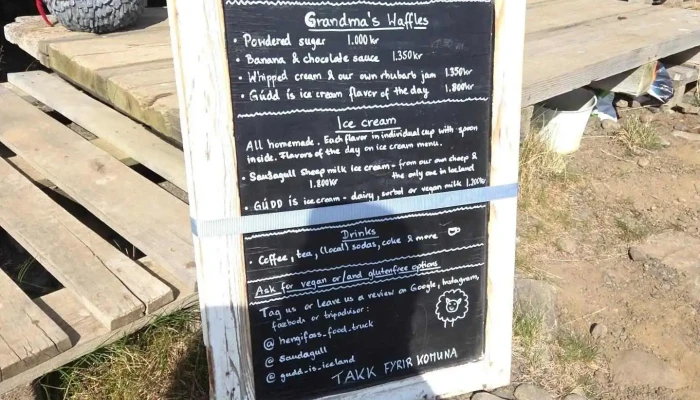 Grandma's Waffles
• Powdered sugar 1.000kr
• Banana & chocolate sauce 1.350kr
• Whipped cream & our own rhubarb jam 1.350kr
• Gúdd ís ice cream flavor of the day 1.800kr
Ice cream
All homemade. Each flavor in individual cup with spoon
inside. Flavors of the day on ice cream menu.
• Saudagull Sheep milk ice cream - from our own sheeps &
1.800kr the only one in Iceland
• GÚDD ÍS ice cream - dairy, sorbet or vegan milk 1.200kr
Drinks
• Coffee, tea, (local) sodas, coke & more
Ask for vegan or/and glutenfree options
Tag us or leave us a review on Google, Instagram,
facebook or tripadvisor:
@ hengifoss_food_truck
@ saudagull
@ gudd_is_iceland
TAKK FYRIR KOMUNA